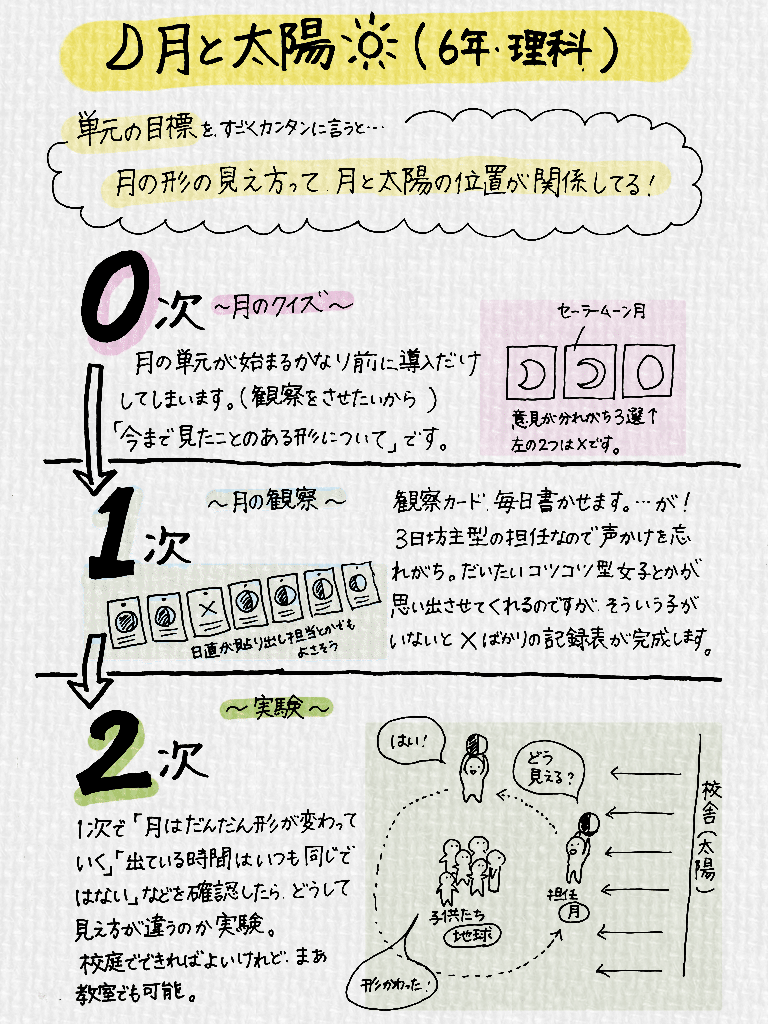 月と太陽（6年・理科）
単元の目標を、すごくカンタンに言うと…
月の形の見え方って、月と太陽の位置が関係してる！
0次 〜月のクイズ〜
月の単元が始まるかなり前に導入だけ
してしまいます。（観察をさせたいから）
「今まで見たことのある形について」です。
セーラームーン月
意見が分れがち3選↑
左の2つは×です。
1次 〜月の観察〜
日直が貼り出し担当とかでも
よさそう
観察カード、毎日書かせます。…が！
3日坊主型の担任なので声かけを忘
れがち。だいたいコツコツ型女子とかが
思い出させてくれるのですが、そういう子が
いないと×ばかりの記録表が完成します。
2次 〜実験〜
1次で「月はだんだん形が変わって
いく」「出ている時間はいつも同じで
はない」などを確認したら、どうして
見え方が違うのか実験。
校庭でできればよいけれど、まぁ
教室でも可能。
はい！
どう
見える？
校舎（太陽）
担任
月
子供たち
地球
形かわった！